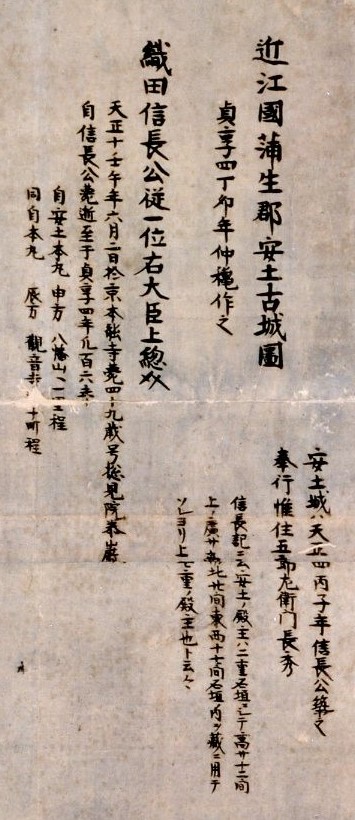 近江國蒲生郡安土古城圖
貞享四丁卯年仲穐作之
織田信長公従一位右大臣上總介
天正十壬午年六月二日於京本能寺薨四十九歳号総見院泰巌
自信長公薨逝至于貞享四年凡百六年
自安土本丸 申方 八幡山ヘ一里程
同自本丸 辰方 觀音寺ヘ十町程
安土城ハ天正四丙子年信長公築之
奉行惟住五郎左衛門長秀
信長記ニ云安土ノ殿主ハ二重石垣ニシテ高サ十二間
上ノ廣サ南北廿間東西十七間石垣ノ内ヲ蔵ニ用テ
ソレヨリ上七重ノ殿主也ト云々